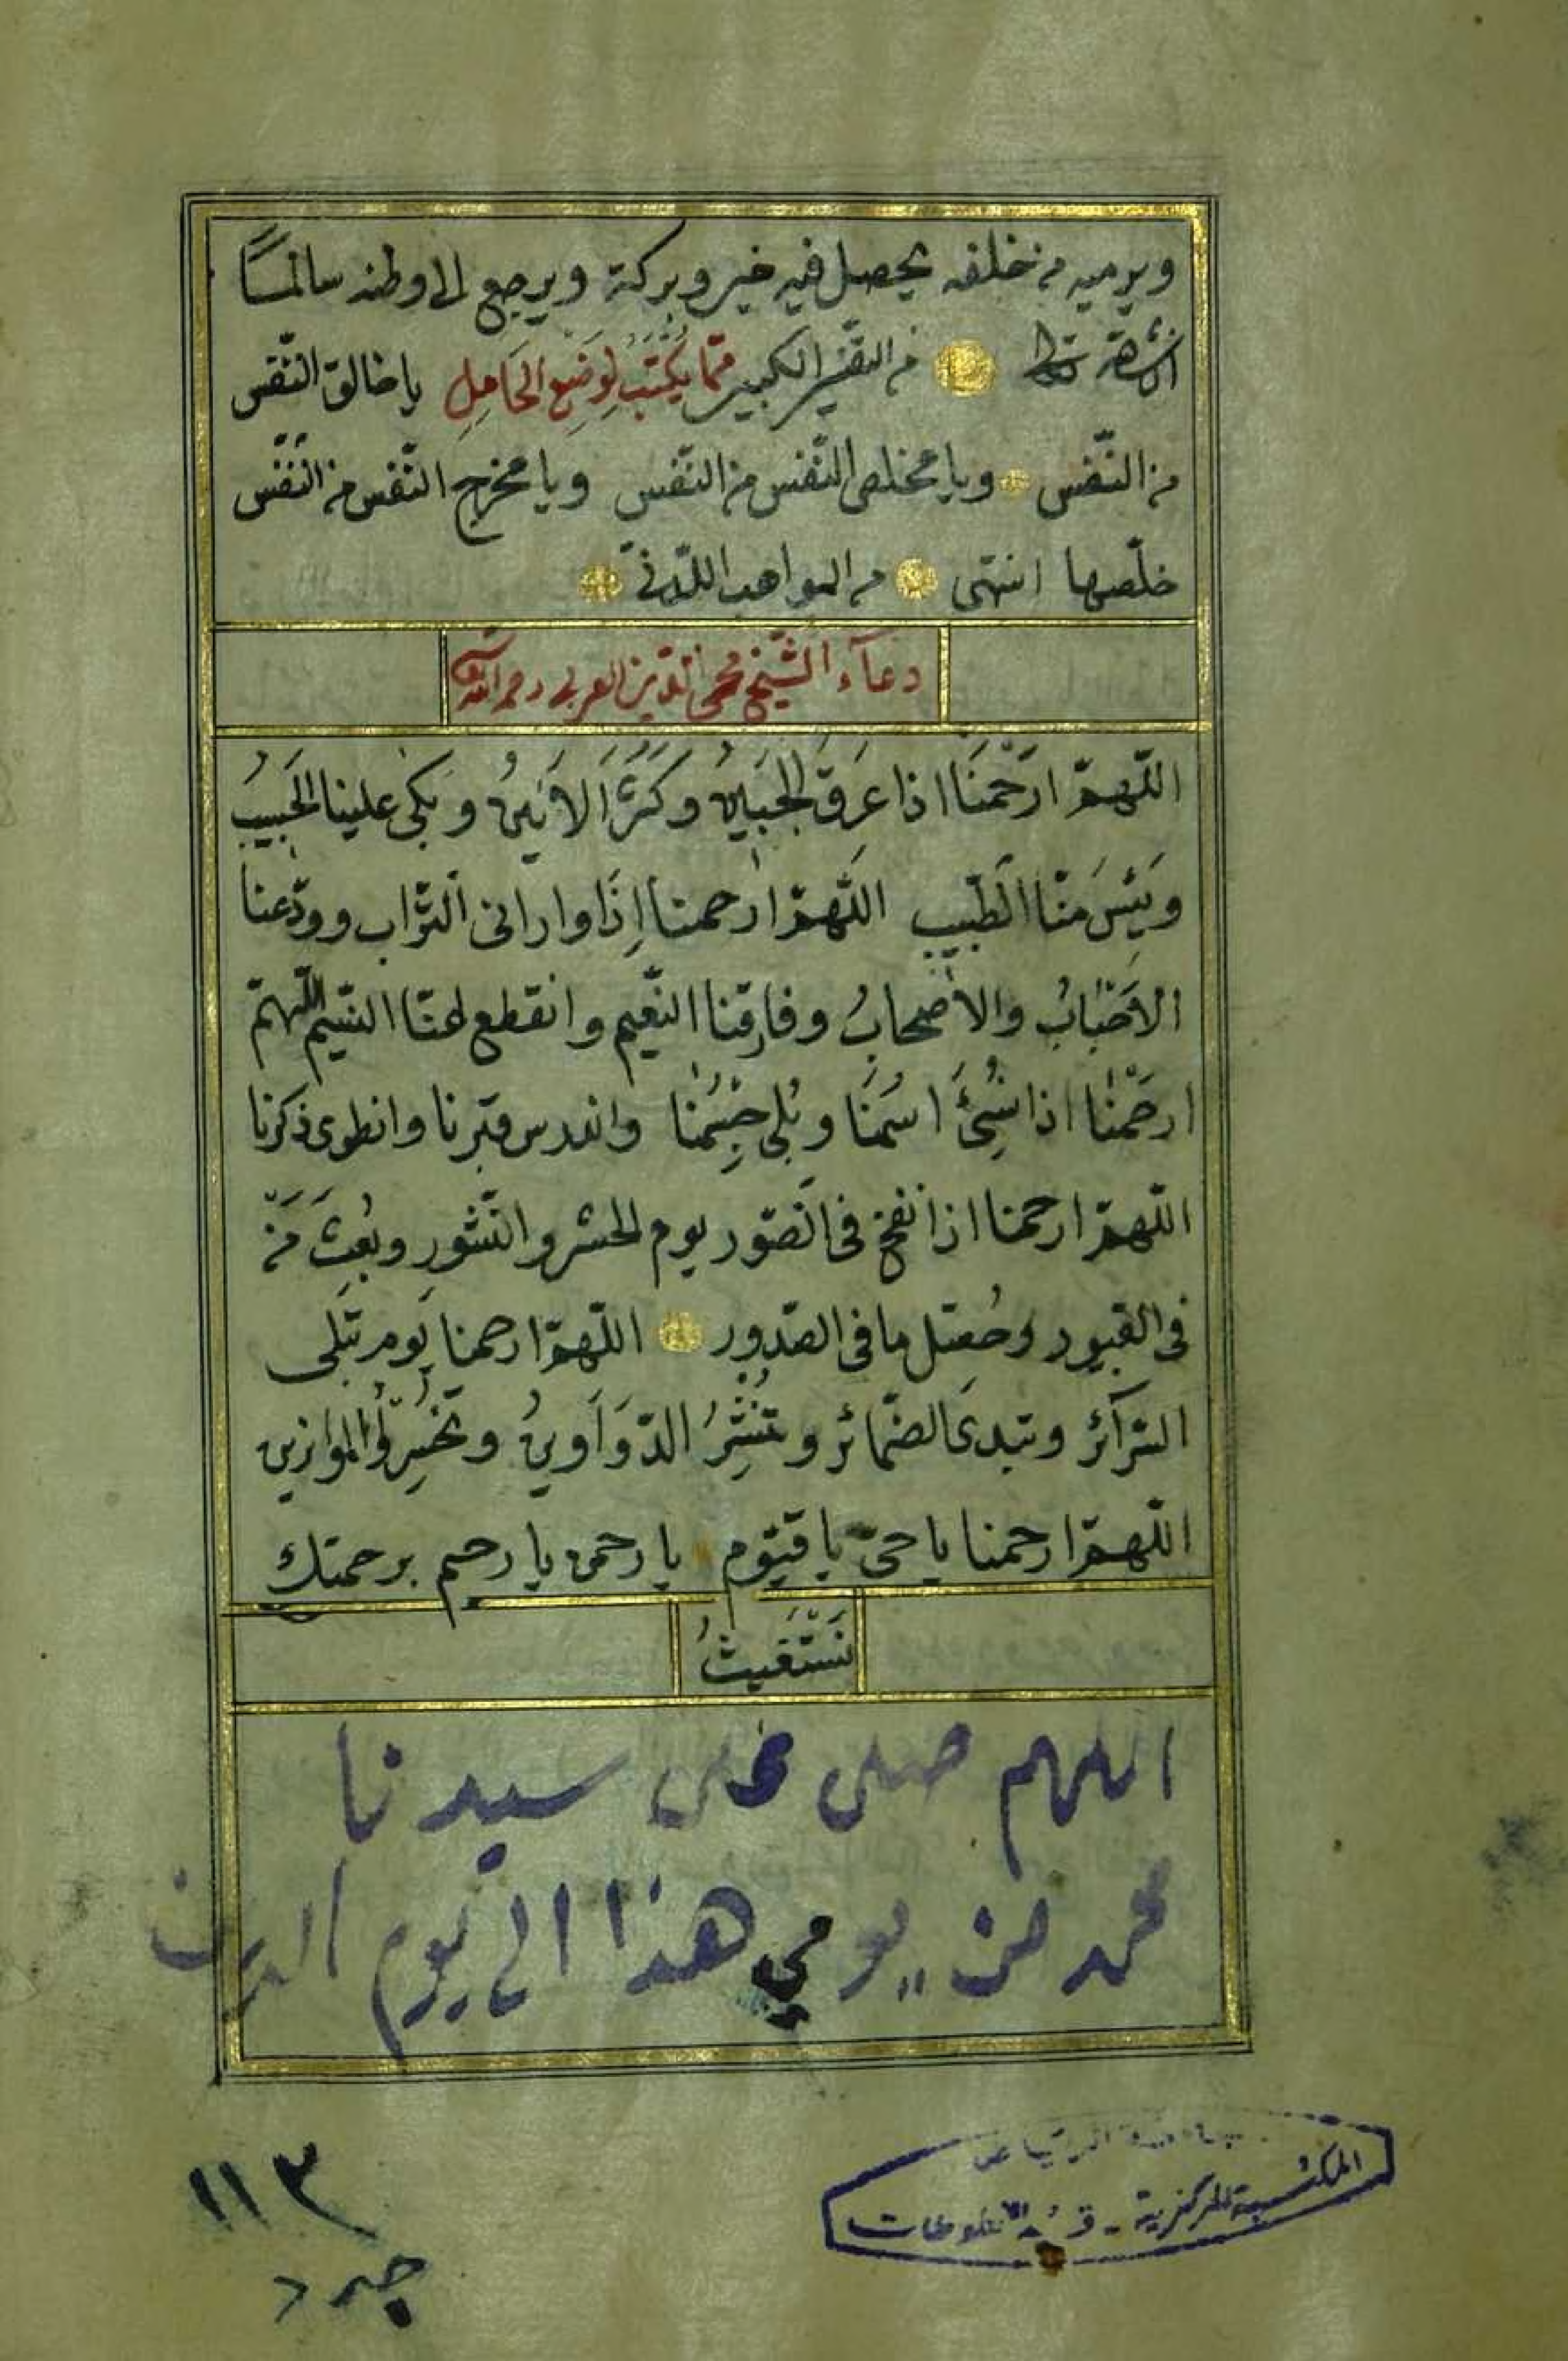 ويرميه من خلفه يحصل فيه خير وبركة ويرجع الا وطنه سالمًا
من التفسير الكبير ممّا يُكتَبُ لِوَضعِ الحَامِلِ يا خالق النّفس
من النّفس ويا مخلص النّفس من النّفس ويا مخرج النّفس من النّفس
خلّصها انتهى من المواهب اللّدنّي
دعآء الشّيخ محى الدّين العربى رحمه الله
اللّهمّ ارْحَمْنَا اذا عَرَقَ الجَبِينُ وكَثُرَ الاَنِينُ وبَكى علينا الحَبِيبُ
وَيَئِسَ منّا الطّبيب اللّهمّ ارحمنا إذَا وارانى التّراب وودّعنا
الاَحْبابُ والاَصْحابُ وفارقنا النّعيم وانقطع عنّا النّسيم اللّهمّ
ارحَمْنا اذا نُسِىَ اسمُنَا وبُلى جِسْمُنا واندرس قبرنا وانطوى ذكرنا
اللّهمّ ارحمنا اذا نفخ فى الصّور يوم الحشر والنّشور وبُعِثَ مَنْ
فى القبور وحُصّل ما فى الصّدور اللّهمّ ارحمنا يوم تبلى
السّرآئر وتبدى الضّمائر وتُنْشَرُ الدّوَاوينُ وتُحْسَرُ الموازين
اللّهمّ ارحمنا يا حىّ يا قيّوم يا رحمن يا رحيم برحمتك
نَسْتَغيثُ
اللهم صلى على سيدنا
محمد من يومي هذا الى يوم الدين
١١٣
جامعة الرياض
المكتبة المركزية - قسم المخطوطات